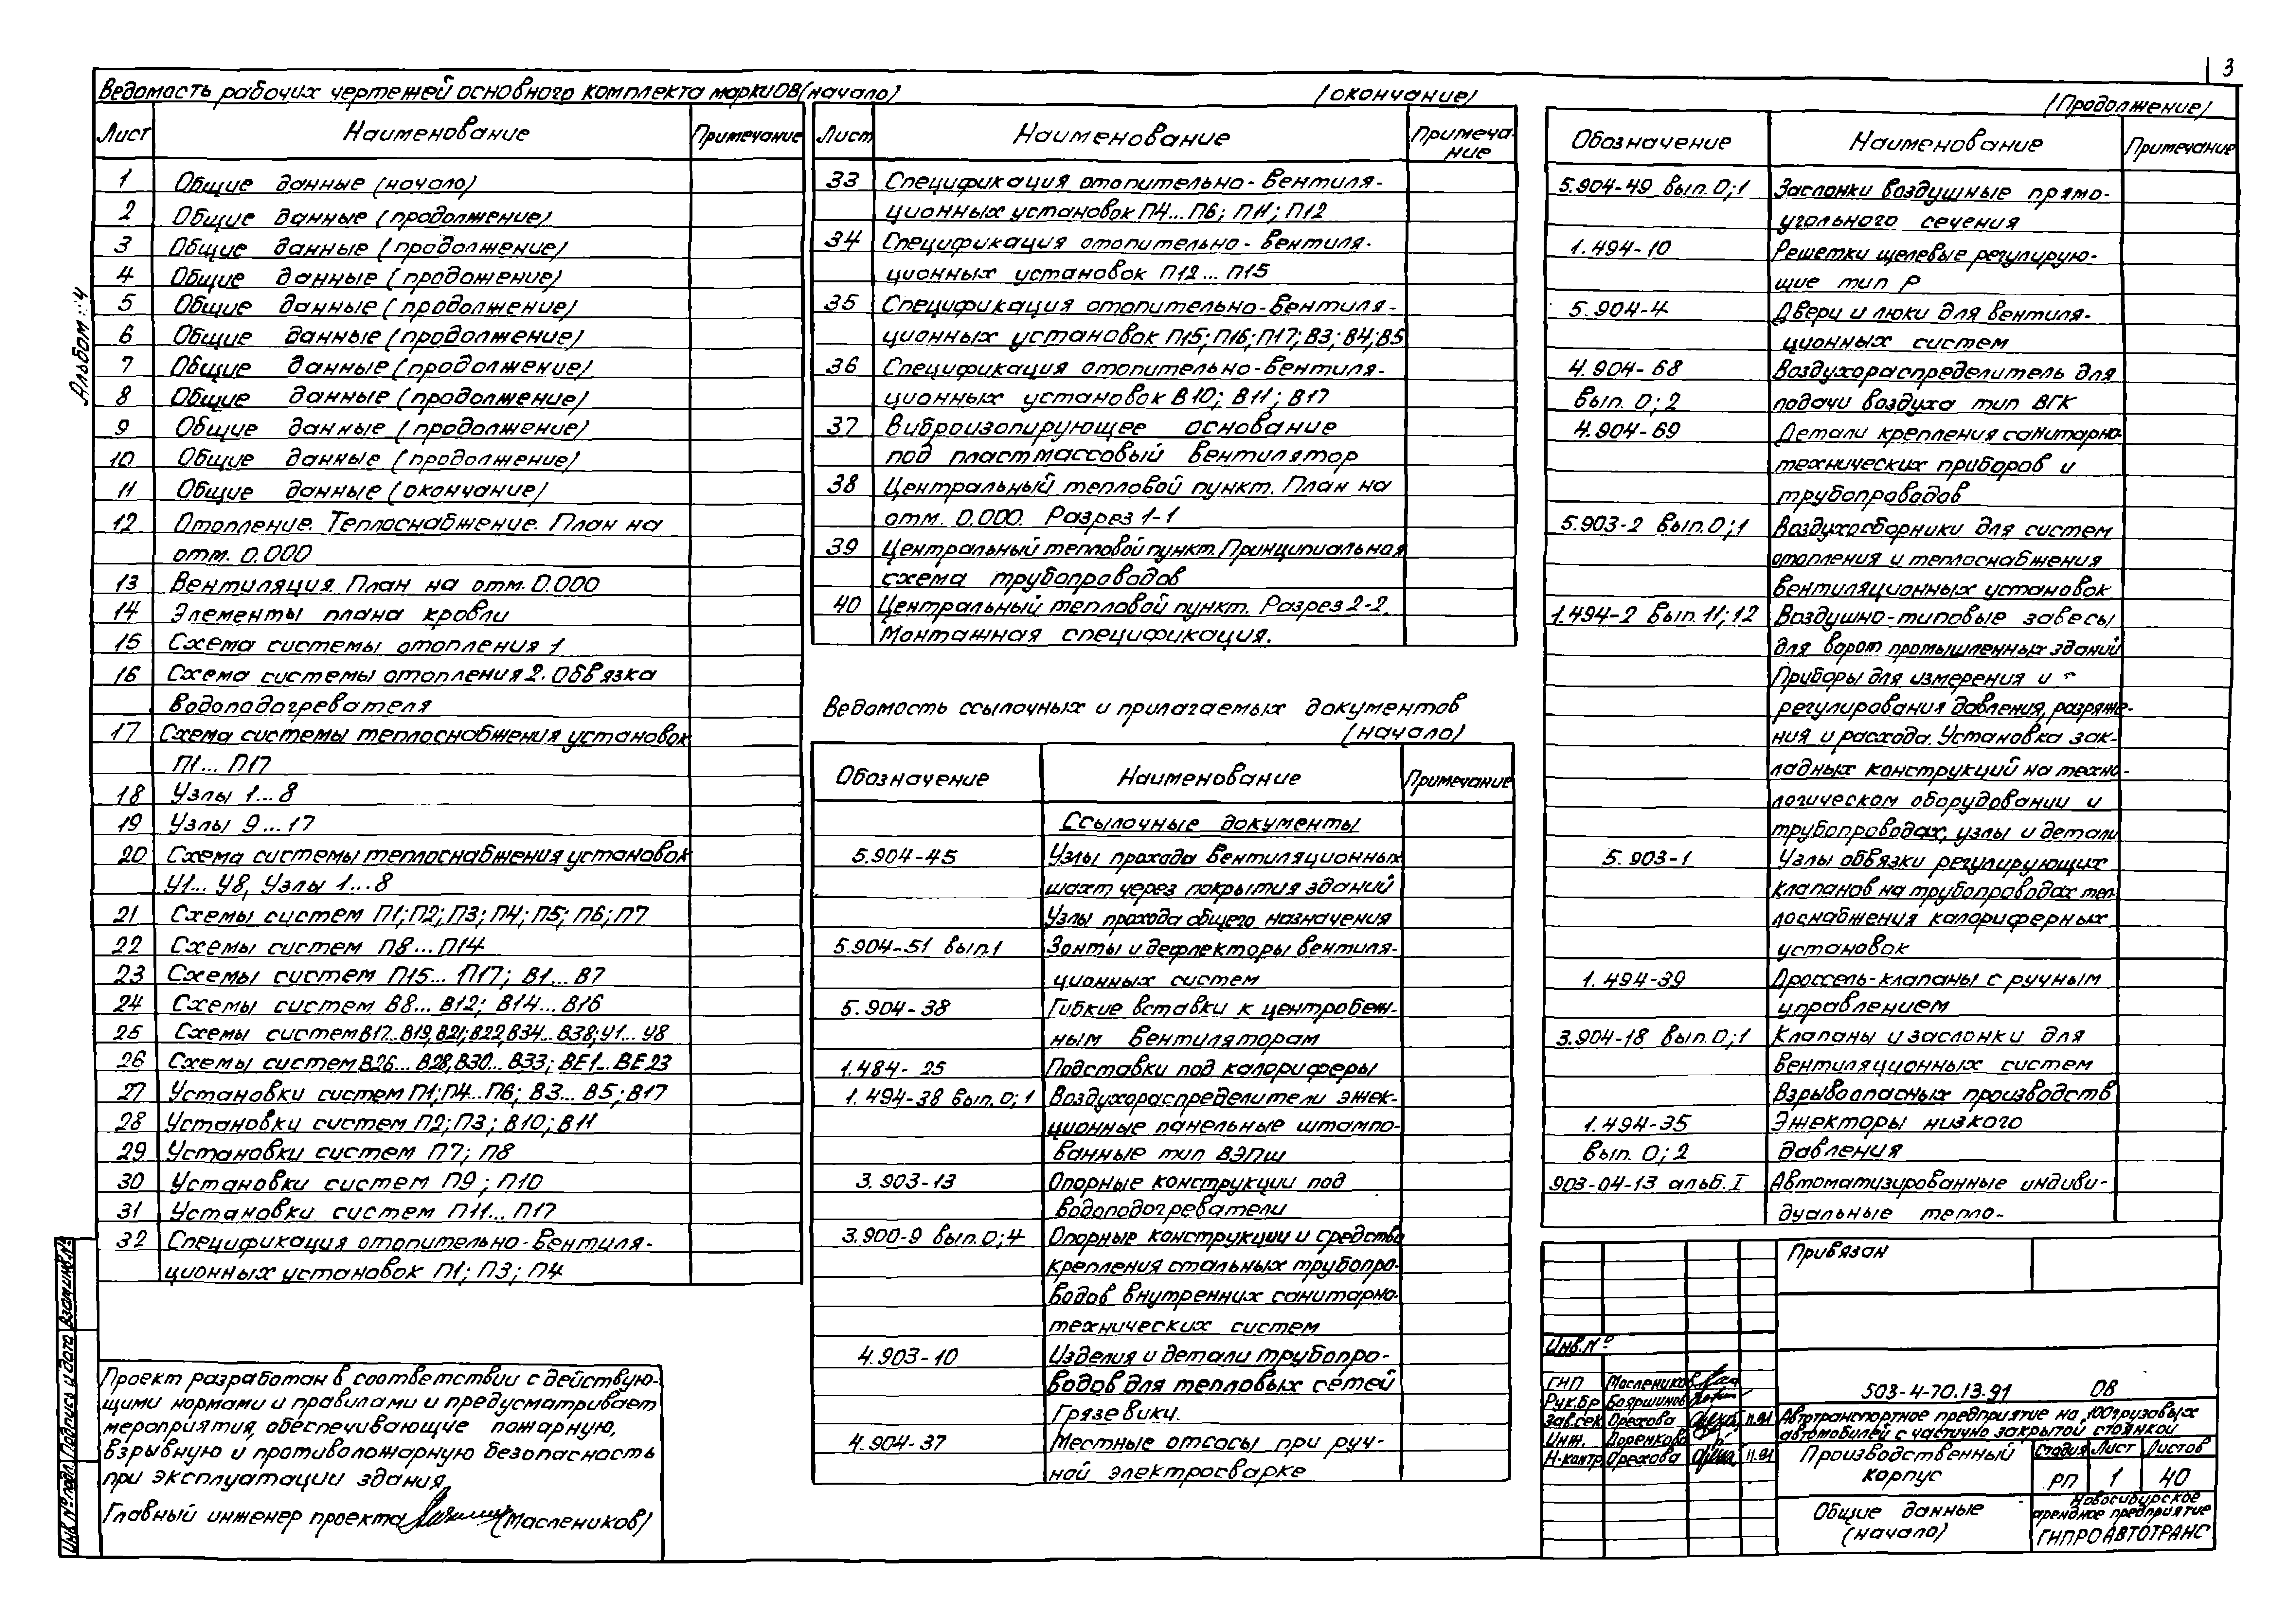 3
Ведомасть рабочих чертежей основного комплекта марки ОВ (начало)
Лист Наименование Примечание
1 Общие данные (начало)
2 Общие данные (продолжение)
3 Общие данные (продолжение)
4 Общие данные (продожение)
5 Общие данные (продолжение)
6 Общие данные (продолжение)
7 Общие данные (продолжение)
8 Общие данные (продолжение)
9 Общие данные (продолжение)
10 Общие данные (продолжение)
11 Общие данные (окончание)
12 Отопление. Теплоснабжение. План на
отм. 0.000
13 Вентиляция. План на отм. 0.000
14 Элементы плана кровли
15 Схема системы отопления 1
16 Схема системы отопления 2. Обвязка
водоподогревателя
17 Схема системы теплоснабжения установок
П1... П17
18 Узлы 1...8
19 Узлы 9...17
20 Схема системы теплоснабжения установок
У1... У8, Узлы 1...8
21 Схемы систем П1; П2; П3; П4; П5; П6; П7
22 Схемы систем П8... П14
23 Схемы систем П15... П17; В1... В7
24 Схемы систем В8... В12; В14... В16
25 Схемы систем В17...В19, В21; В22, В34... В38; У1... У8
26 Схемы систем В26... В28, В30... В33; ВЕ1... ВЕ23
27 Установки систем П1; П4... П6; В3... В5; В17
28 Установки систем П2; П3; В10; В11
29 Установки систем П7; П8
30 Установки систем П9; П10
31 Установки систем П11... П17
32 Спецификация отопительно-вентиля-
ционных установок П1; П3; П4
(окончание)
Лист Наименование Примеча-
ние
33 Спецификация отопительно-вентиля-
ционных установок П4... П6; П11; П12
34 Спецификация отопительно-вентиля-
ционных установок П12... П15
35 Спецификация отопительно-вентиля-
ционных установок П15; П16; П17; В3; В4; В5
36 Спецификация отопительно-вентиля-
ционных установок В10; В11; В17
37 Виброизолирующее основание
под пластмассовый вентилятор
38 Центральный тепловой пункт. План на
отм. 0.000. Разрез 1-1
39 Центральный тепловой пункт. Принципиальная
схема трубопроводов
40 Центральный тепловой пункт. Разрез 2-2.
Монтажная спецификация.
Ведомость ссылочных и прилагаемых документов
(начало)
Обозначение Наименование Примечание
Ссылочные документы
5.904-45 Узлы прохода вентиляционных
шахт через покрытия зданий
Узлы прохода общего назначения
5.904-51 вып.1 Зонты и дефлекторы вентиля-
ционных систем
5.904-38 Гибкие вставки к центробеж-
ным вентиляторам
1.484-25 Подставки под калориферы
1.494-38 вып. 0; 1 Воздухораспределители эжек-
ционные панельные штампо-
ванные тип ВЭПш
3.903-13 Опорные конструкции под
водоподогреватели
3.900-9 вып. 0; 4 Опорные конструкции и средства
крепления стальных трубопро-
водов внутренних санитарно-
технических систем
4.903-10 Изделия и детали трубопро-
водов для тепловых сетей
Грязевики.
4.904-37 Местные отсосы при руч-
ной электросварке
(Продолжение)
Обозначение Наименование Примечание
5.904-49 вып. 0; 1 Заслонки воздушные прямо-
угольного сечения
1.494-10 Решетки щелевые регулирую-
щие тип Р
5.904-4 Двери и люки для вентиля-
ционных систем
4.904-68 Воздухораспределитель для
вып. 0; 2 подачи воздуха тип ВГК
4.904-69 Детали крепления санитарно-
технических приборов и
трубопроводов
5.903-2 вып. 0; 1 Воздухосборники для систем
отопления и теплоснабжения
вентиляционных установок
1.494-2 вып. 11; 12 Воздушно-типовые завесы
для ворот промышленных зданий
Приборы для измерения и
регулирования давления, разряже-
ния и расхода. Установка зак-
ладных конструкций на техно-
логическом оборудовании и
трубопроводах, узлы и детали
5.903-1 Узлы обвязки регулирующих
клапанов на трубопроводах теп-
лоснабжения калориферных
установок
1.494-39 Дроссель-клапаны с ручным
управлением
3.904-18 вып. 0; 1 Клапаны и заслонки для
вентиляционных систем
взрывоопасных производств
1.494-35 Эжекторы низкого
вып. 0; 2 давления
903-04-13 альб. I Автоматизированные индиви-
дуальные тепло-
Альбом: 4
Инв. № подл. Подпись и дата Взам.инв.№
Проект разработан в соответствии с действую-
щими нормами и правилами и предусматривает
мероприятия, обеспечивающие пожарную,
взрывную и противопожарную безопасность
при эксплуатации здания.
Главный инженер проекта (Маслеников)
Привязан
Инв.№
ГИП Маслеников
Рук.бр Бояршинов
Зав.сек Орехова 11.91
Инж. Доренкова
Н-контр Орехова 11.91
503-4-70.13.91 ОВ
Автотранспортное предприятие на 100 грузовых
автомобилей с частично закрытой стоянкой
Производственный
корпус
Стадия Лист Листов
РП 1 40
Общие данные
(начало)
Новосибирское
арендное предприятие
ГИПРОАВТОТРАНС